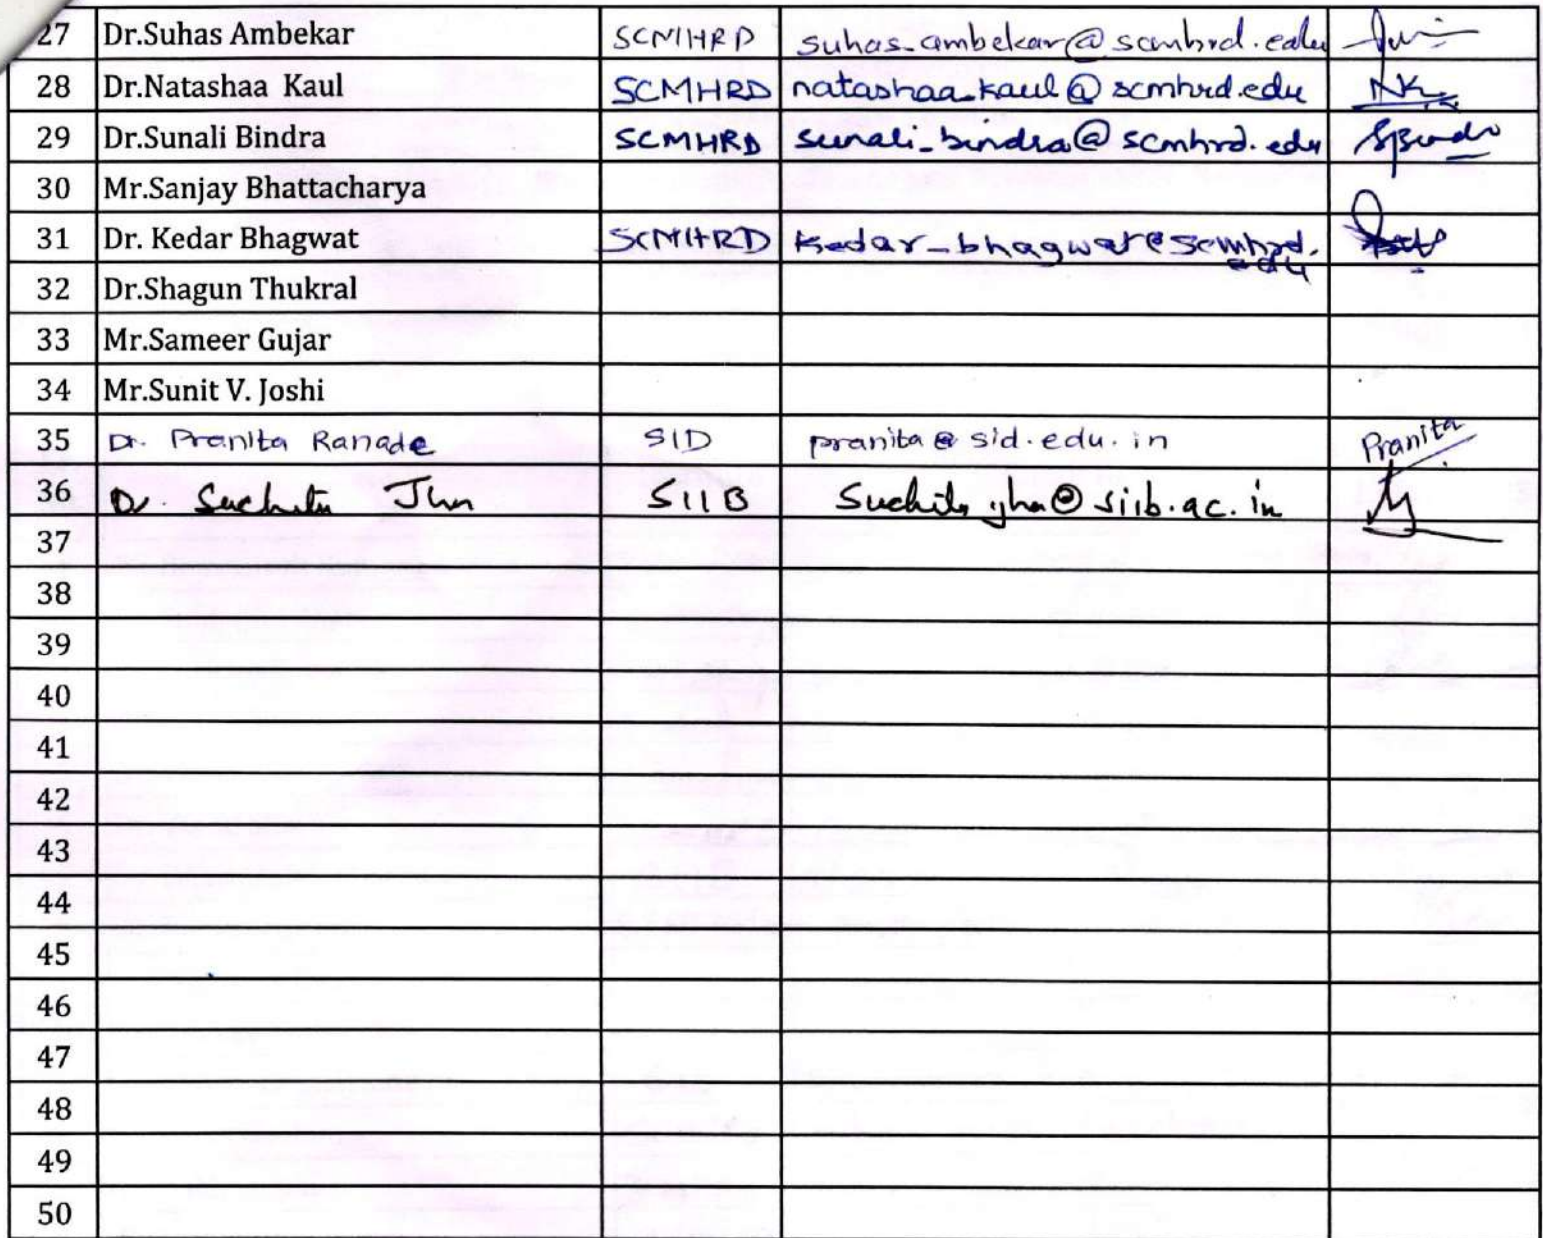 27 Dr.Suhas Ambekar SCMHRD suhas_ambekar@scmhrd.edu
28 Dr.Natashaa Kaul SCMHRD natashaa_kaul@scmhrd.edu NK
29 Dr.Sunali Bindra SCMHRD sunali_bindra@scmhrd.edu
30 Mr.Sanjay Bhattacharya
31 Dr. Kedar Bhagwat SCMHRD Kedar_bhagwat@scmhrd.
edu
32 Dr.Shagun Thukral
33 Mr.Sameer Gujar
34 Mr.Sunit V. Joshi
35 Dr. Pranita Ranade SID pranita@sid.edu.in Pranita
36 Dr. Suchita Jha SIIB Suchita.jha@siib.ac.in
37
38
39
40
41
42
43
44
45
46
47
48
49
50